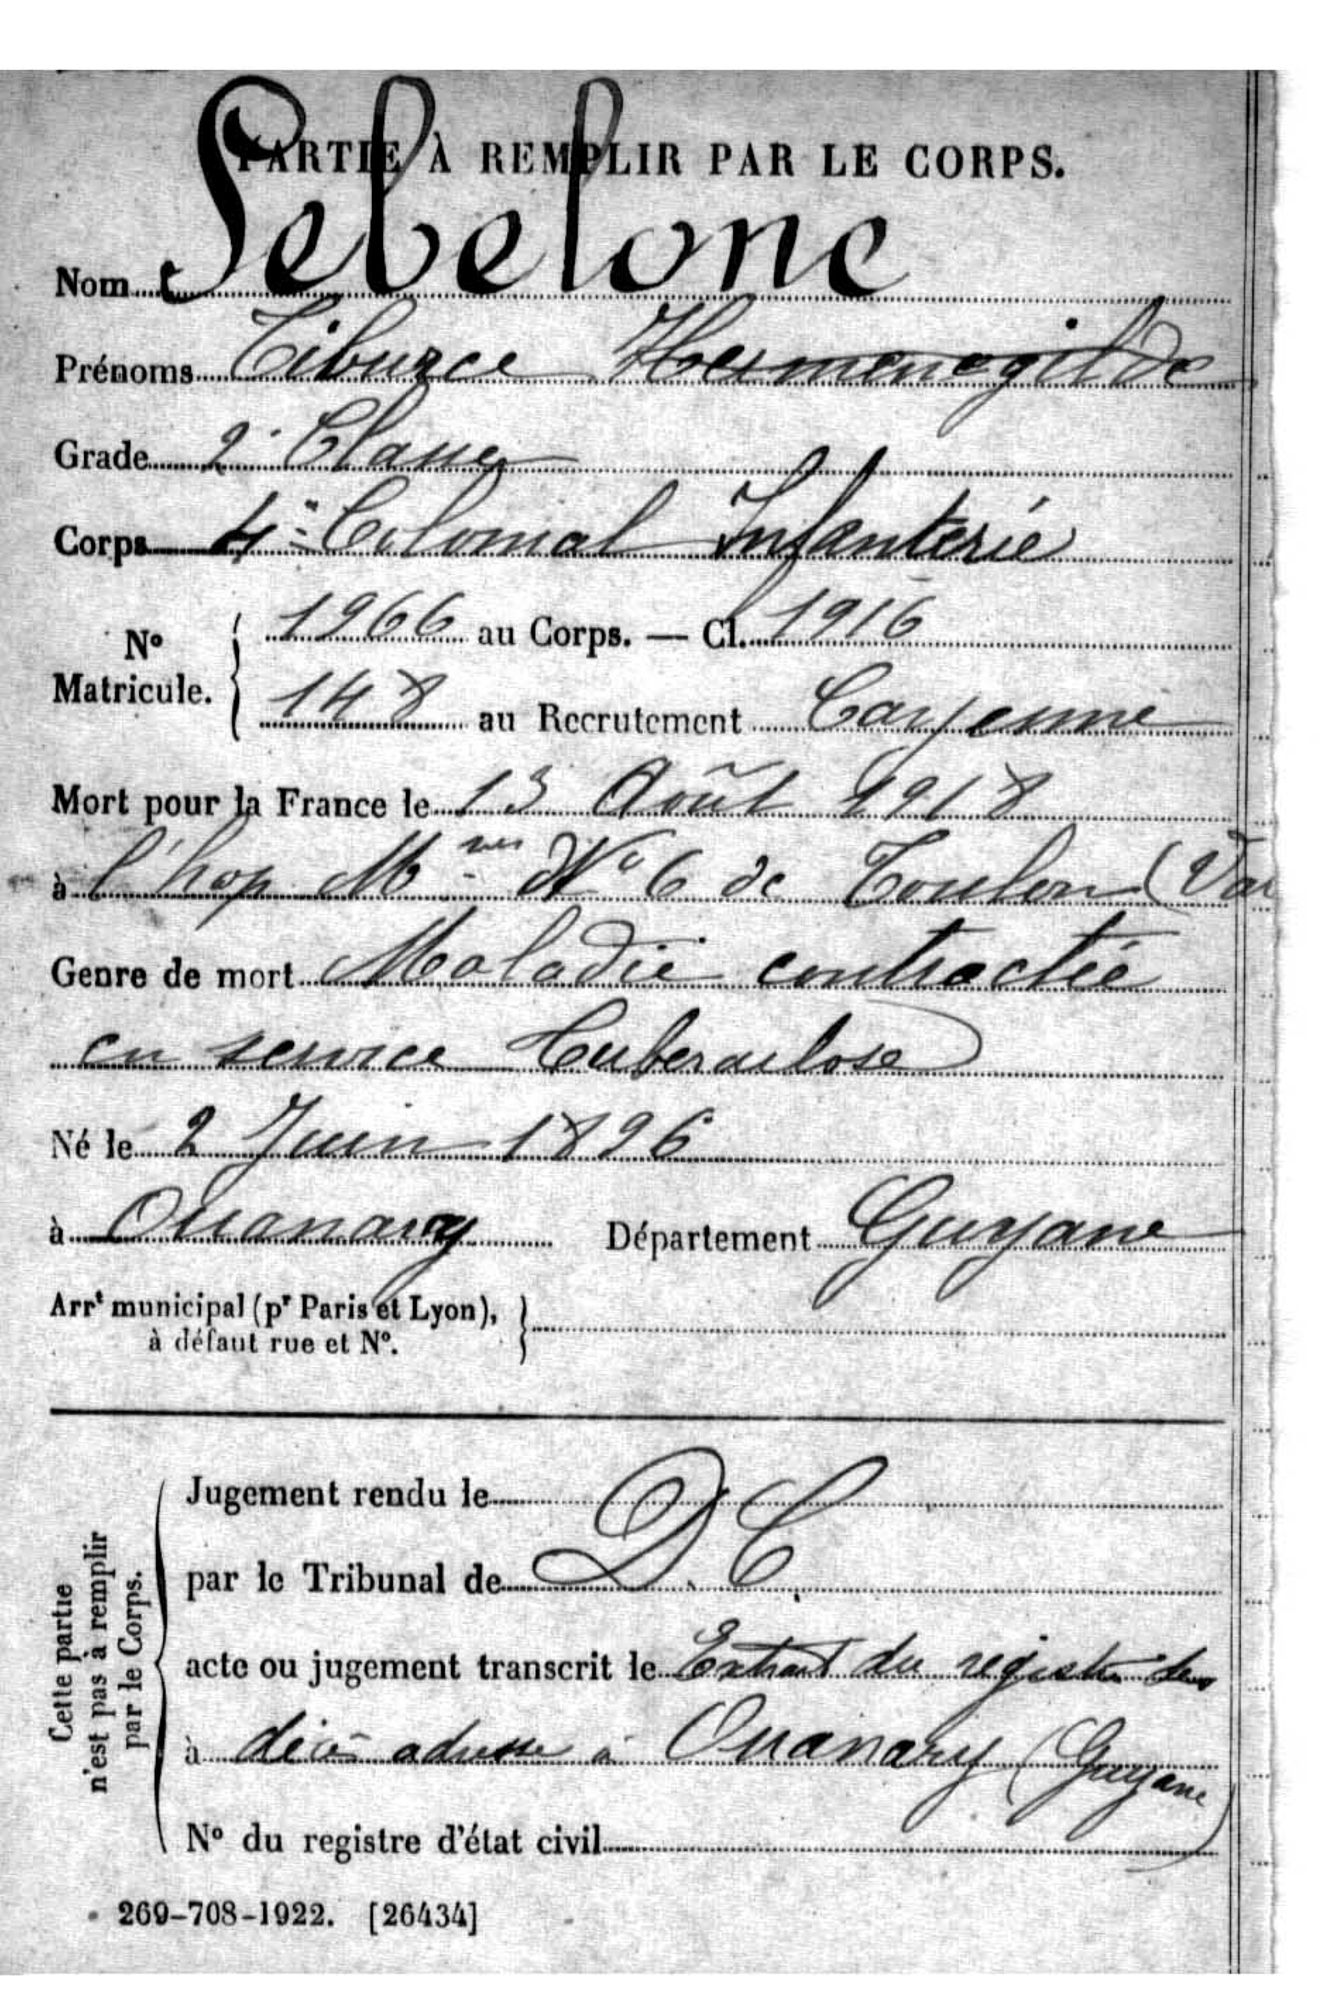 PARTIE À REMPLIR PAR LE CORPS.
Nom Lebelone
Prénoms Tiburce Hermenegilde
Grade 2e Classe
Corps 4e Colonial Infanterie
No Matricule. 1966 au Corps. — Cl. 1916
148 au Recrutement Cayenne
Mort pour la France le 13 Août 1918
à l'hop Mre No 6 de Toulon (Var
Genre de mort Maladie contractée
en service Tuberculose
Né le 2 Juin 1896
à Ouanary Département Guyane
Arrt municipal (pr Paris et Lyon),
à défaut rue et No.
Cette partie
n'est pas à remplir
par le Corps.
Jugement rendu le
par le Tribunal de D.C.
acte ou jugement transcrit le Extrait du registre des
à décès adressé à Ouanary (Guyane)
No du registre d'état civil
269-708-1922. [26434]